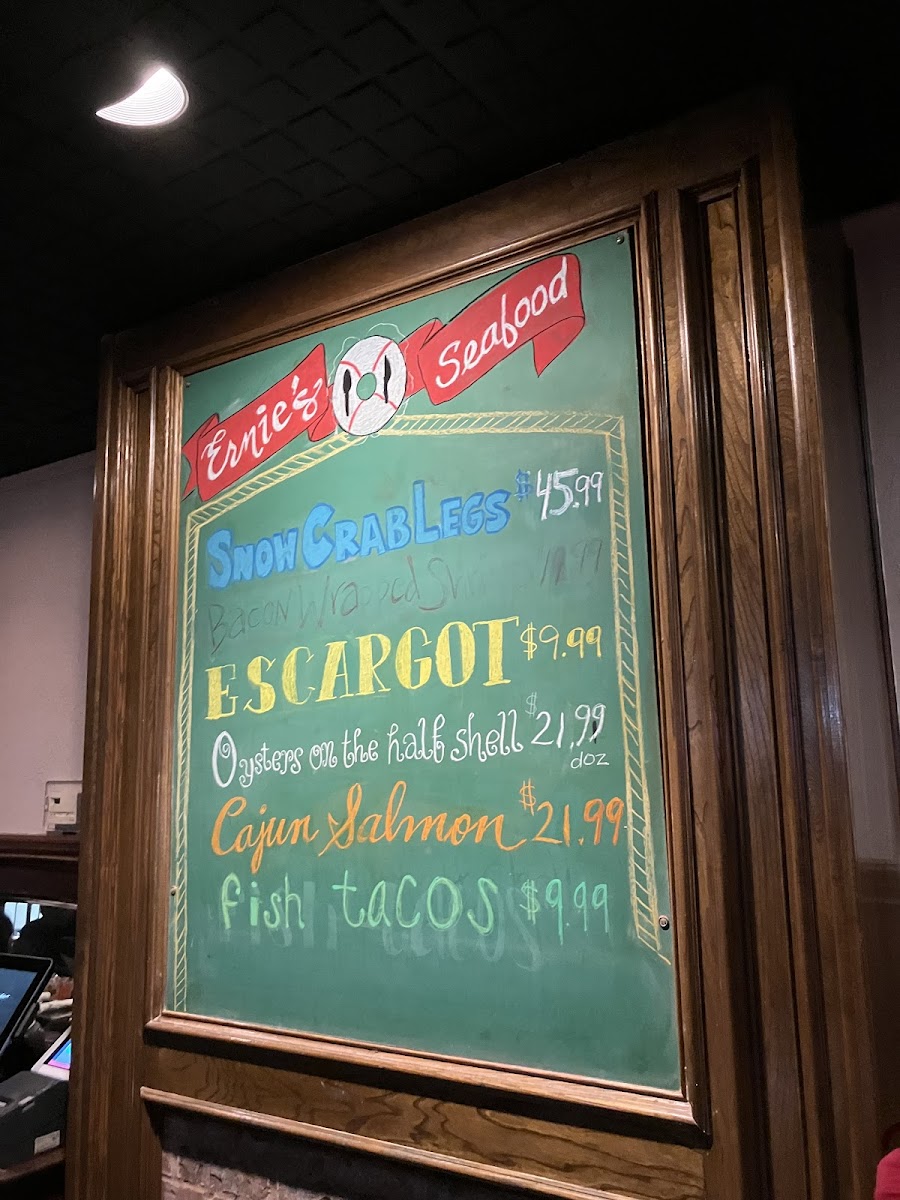 Ernie's Seafood
Snow Crab Legs $45.99
Bacon Wrapped
ESCARGOT $9.99
Oysters on the half shell $21.99
doz
Cajun Salmon $21.99
fish tacos $9.99